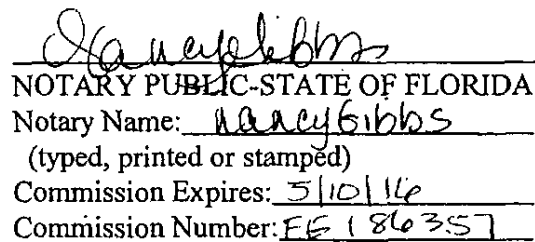 Nancy Gibbs
NOTARY PUBLIC-STATE OF FLORIDA
Notary Name: Nancy Gibbs
(typed, printed or stamped)
Commission Expires: 5/10/16
Commission Number: EE 186357